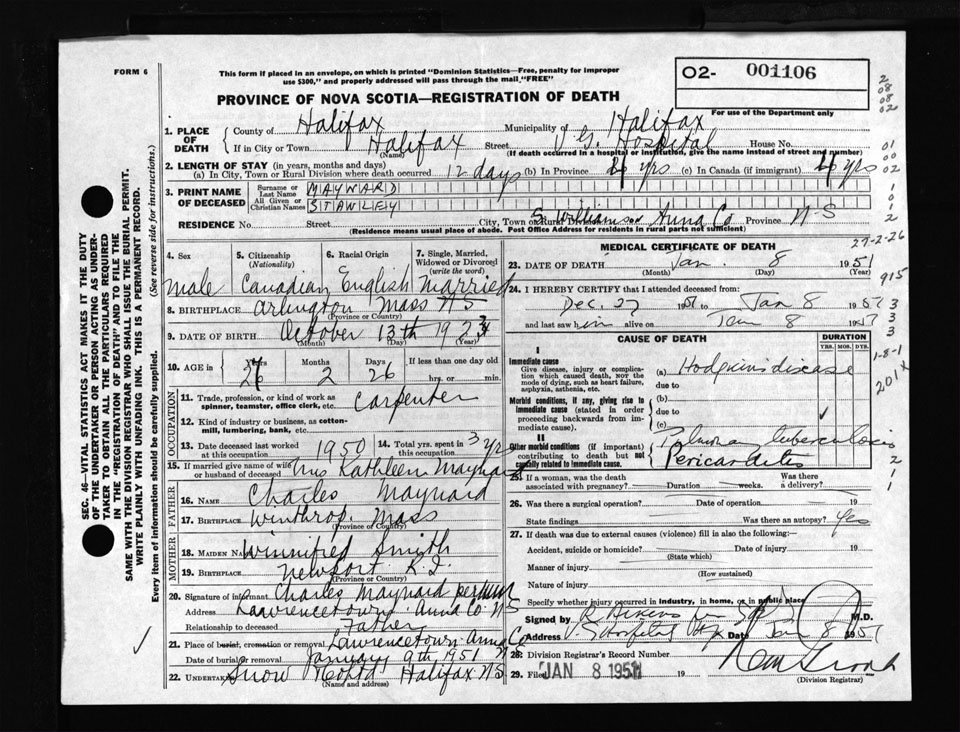 FORM 6
This form if placed in an envelope, on which is printed "Dominion Statistics—Free, penalty for improper
use $300," and properly addressed will pass through the mail "FREE"
O2- 001106
2
08
08
02
PROVINCE OF NOVA SCOTIA—REGISTRATION OF DEATH
For use of the Department only
1. PLACE OF DEATH
County of Halifax Municipality of Halifax
If in City or Town Halifax Street V G. Hospital House No.
(Name) (If death occurred in a hospital or institution, give the name instead of street and number)
01
00
02
2. LENGTH OF STAY (in years, months and days)
(a) In City, Town or Rural Division where death occurred 12 days (b) In Province 4 yrs (c) In Canada (if immigrant) 4 yrs
3. PRINT NAME OF DECEASED
Surname or Last Name MAYNARD
All Given or Christian Names STANLEY
1
0
1
2
RESIDENCE No. Street City, Town or Rural Division S. Williamson Anna Co Province N-S
(Residence means usual place of abode. Post Office Address for residents in rural parts not sufficient)
27-2-26
4. Sex
male
5. Citizenship (Nationality)
Canadian
6. Racial Origin
English
7. Single, Married, Widowed or Divorced (write the word)
Married
8. BIRTHPLACE Arlington Mass
(Province or Country)
9. DATE OF BIRTH October 13th 192
(Month) (Day) (Year)
10. AGE in Years Months Days If less than one day old
2 26 hrs. or min.
OCCUPATION
11. Trade, profession, or kind of work as
spinner, teamster, office clerk, etc. Carpenter
12. Kind of industry or business, as cotton-
mill, lumbering, bank, etc.
13. Date deceased last worked at this occupation 1950
14. Total yrs. spent in this occupation 3 yrs
15. If married give name of wife or husband of deceased Mrs Kathleen Maynard
FATHER
16. NAME Charles Maynard
17. BIRTHPLACE Winthrop Mass
(Province or Country)
MOTHER
18. MAIDEN NAME Winnifred Smith
19. BIRTHPLACE Newport R.I.
(Province or Country)
20. Signature of informant Charles Maynard per
Address Lawrencetown Anna Co NS
Relationship to deceased Father
21. Place of burial, cremation or removal Lawrencetown Anna Co
Date of burial or removal January 9th 1951
22. UNDERTAKER Snow Halifax NS
(Name and address)
MEDICAL CERTIFICATE OF DEATH
23. DATE OF DEATH Jan. 8 1951
(Month) (Day) (Year)
915
24. I HEREBY CERTIFY that I attended deceased from:
Dec. 27 to Jan 8 1951
and last saw him alive on Jan 8 1951
3
3
3
CAUSE OF DEATH
DURATION
YRS. MOS. DYS.
1-8-1
201X
I
Immediate cause
Give disease, injury or complica-
tion which caused death, not the
mode of dying, such as heart failure,
asphyxia, asthenia, etc.
(a) Hodgkins disease
due to
Morbid conditions, if any, giving rise to
immediate cause (stated in order
proceeding backwards from im-
mediate cause).
(b)
due to
(c)
II
Other morbid conditions (if important)
contributing to death but not
causally related to immediate cause.
Pulmonary tuberculosis
Pericarditis
2
1
1
25. If a woman, was the death associated with pregnancy? Duration weeks. Was there a delivery?
26. Was there a surgical operation? Date of operation 19
State findings Was there an autopsy? Yes
27. If death was due to external causes (violence) fill in also the following:
Accident, suicide or homicide? Date of injury 19
(State which)
Manner of injury
(How sustained)
Nature of injury
Specify whether injury occurred in industry, in home, or in public place
Signed by M.D.
Address V. G. Hospital Hfx Date Jan 8 1951
28. Division Registrar's Record Number
29. Filed JAN 8 1951 19
(Division Registrar)
SEC. 46—VITAL STATISTICS ACT MAKES IT THE DUTY
OF THE UNDERTAKER OR PERSON ACTING AS UNDER-
TAKER TO OBTAIN ALL THE PARTICULARS REQUIRED
IN THE "REGISTRATION OF DEATH" AND TO FILE THE
SAME WITH THE DIVISION REGISTRAR WHO SHALL ISSUE THE BURIAL PERMIT.
WRITE PLAINLY WITH UNFADING INK. THIS IS A PERMANENT RECORD.
Every item of information should be carefully supplied. (See reverse side for instructions.)